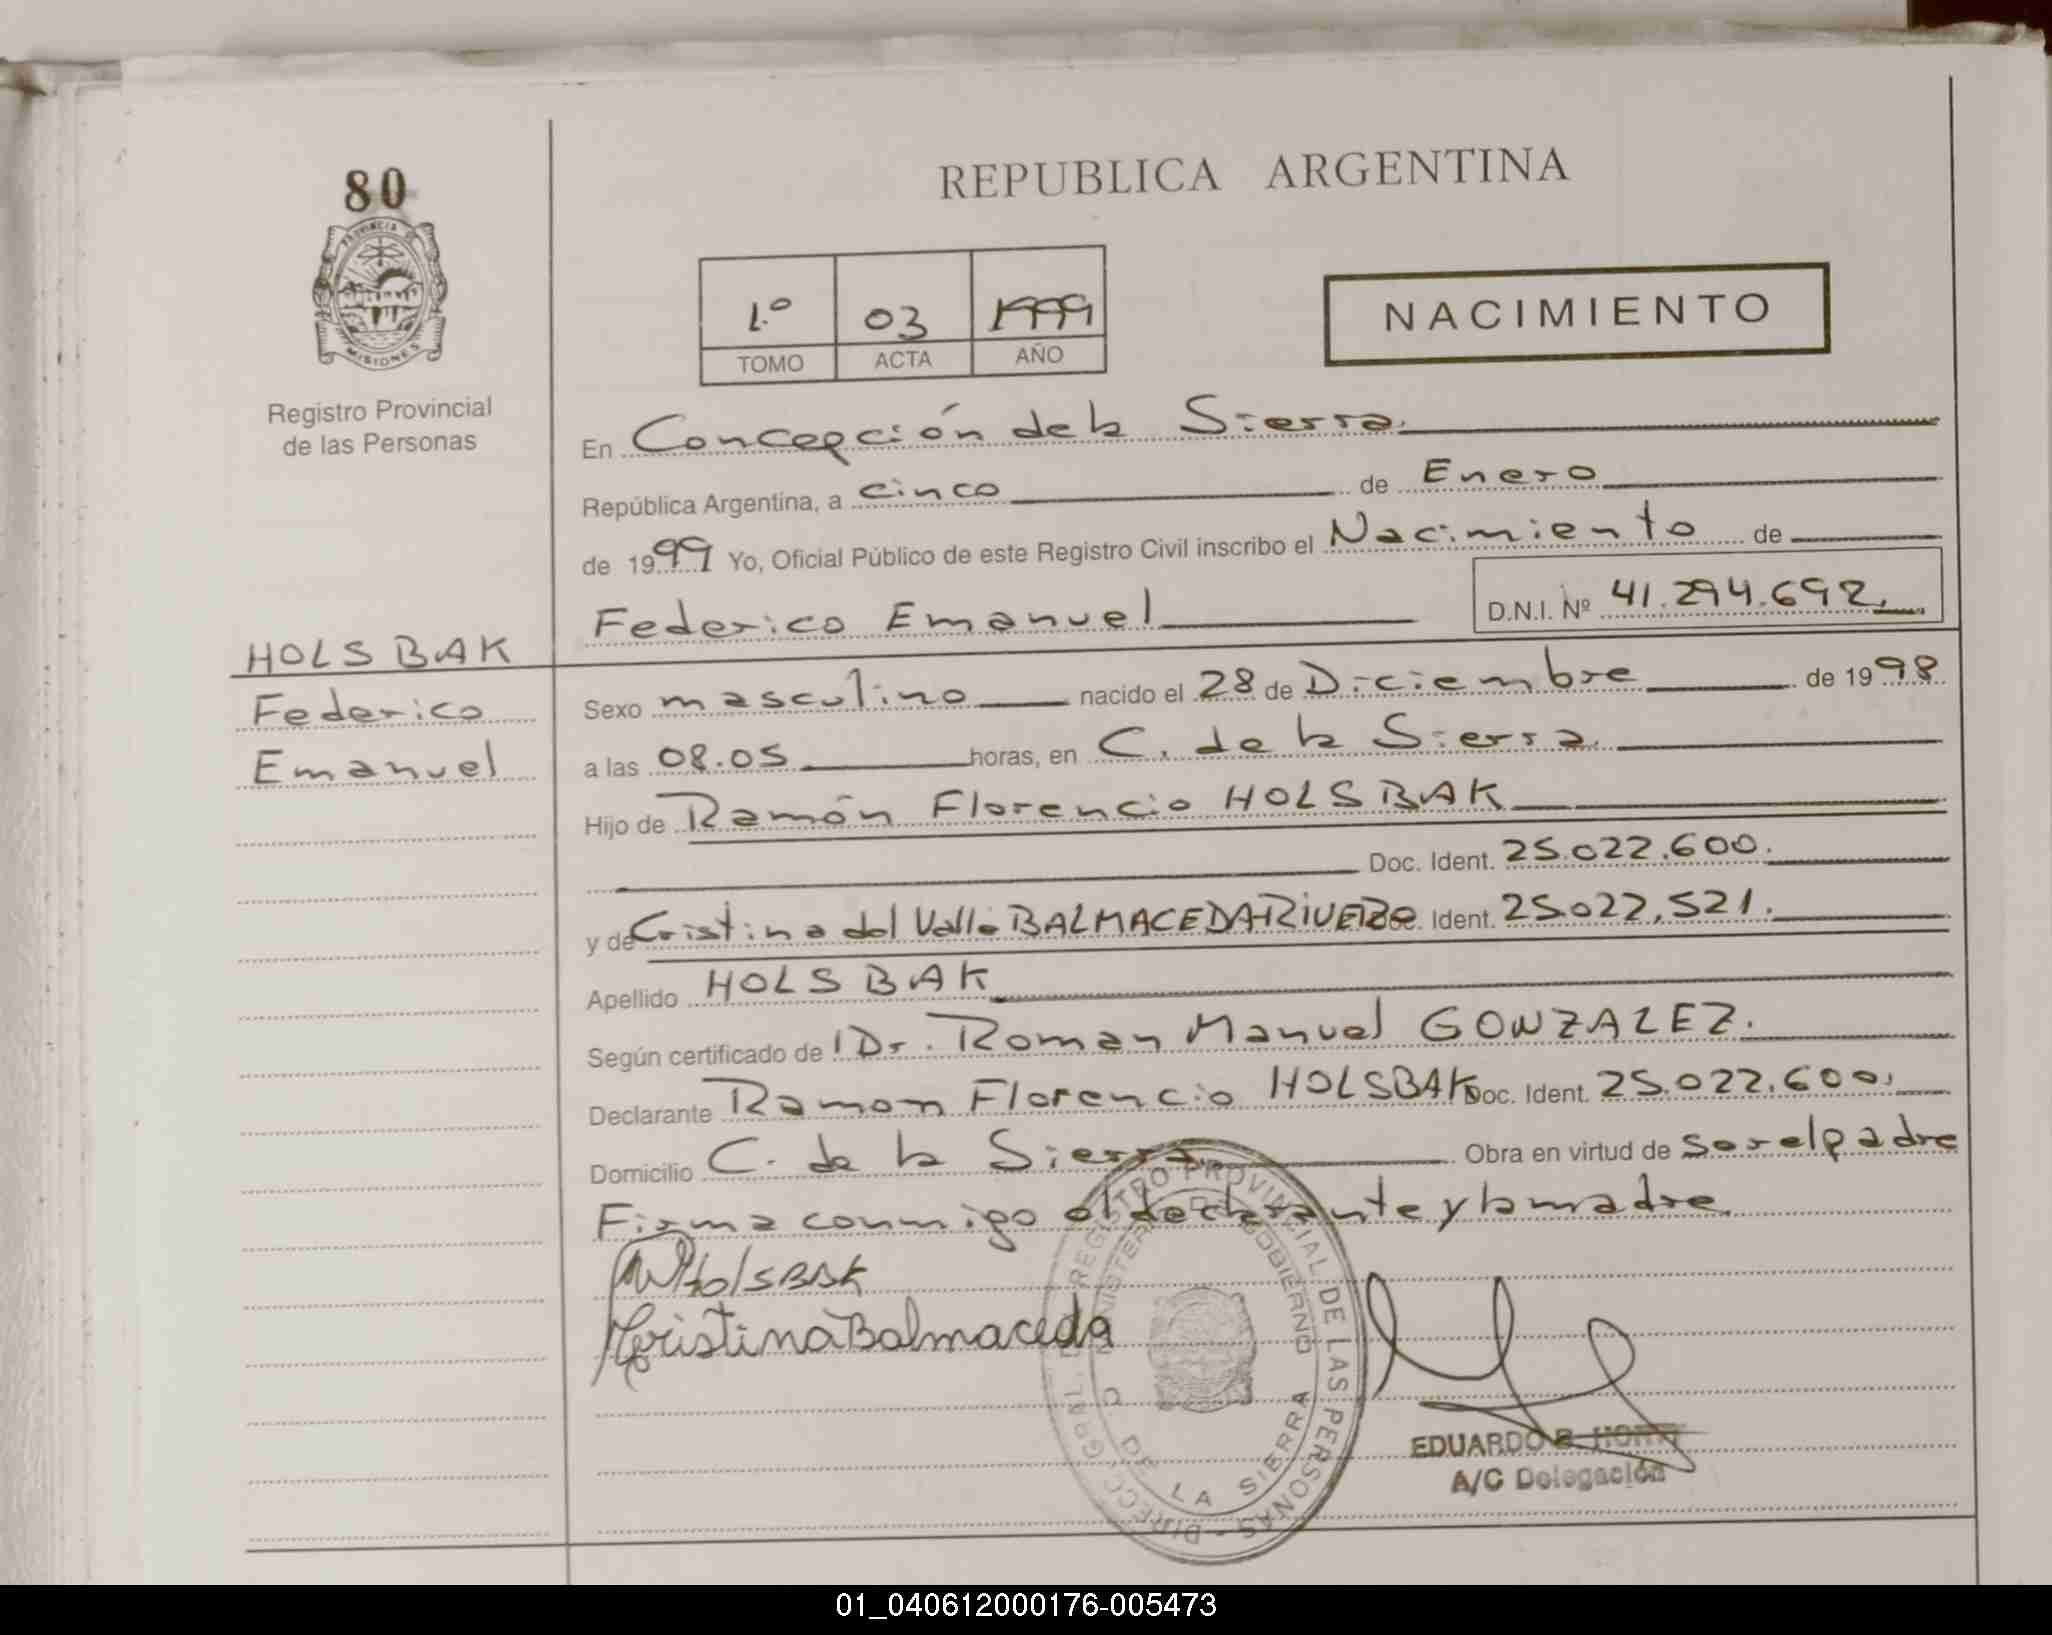 80
PROVINCIA DE
MISIONES
Registro Provincial
de las Personas
HOLSBAK
Federico
Emanuel
REPUBLICA ARGENTINA
1.º 03 1999
TOMO ACTA AÑO
NACIMIENTO
En Concepción de la Sierra.
República Argentina, a cinco de Enero
de 1999 Yo, Oficial Público de este Registro Civil inscribo el Nacimiento de
Federico Emanuel D.N.I. Nº 41.294.692.
Sexo masculino nacido el 28 de Diciembre de 1998
a las 08.05 horas, en C. de la Sierra.
Hijo de Ramón Florencio HOLSBAK
Doc. Ident. 25.022.600.
y de Cristina del Valle BALMACEDA Doc. Ident. 25.022.521.
Apellido HOLSBAK
Según certificado de Dr. Roman Manuel GONZALEZ.
Declarante Ramon Florencio HOLSBAK Doc. Ident. 25.022.600.
Domicilio C. de la Sierra. Obra en virtud de ser el padre
Firma conmigo el declarante y la madre.
Holsbak
Cristina Balmaceda
DIRECC. GRAL. DE REGISTRO PROVINCIAL DE LAS PERSONAS
MINISTERIO DE GOBIERNO
C. DE LA SIERRA
EDUARDO
A/C Delegación
01_040612000176-005473